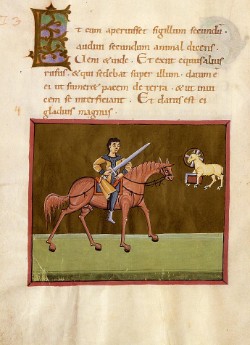 Et cum aperuisset sigillum secundu
audiui secundum animal dicens
Ueni & uide. Et exiit equus alius
rufus. & qui sedebat super illum. datum e
ei ut sumeret pacem de terra. & ut inui
cem se interficiant. Et datus est ei
gladius magnus.